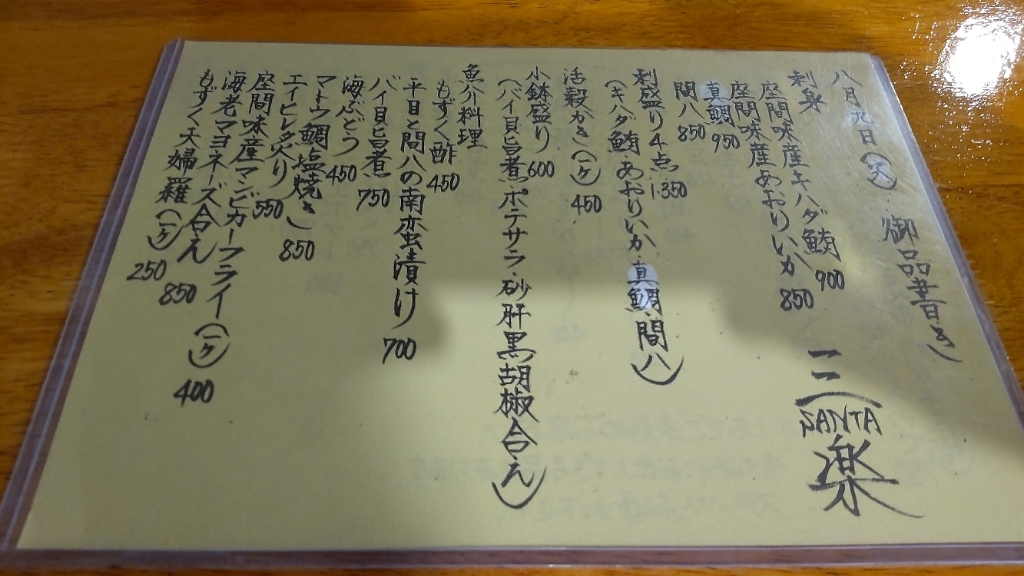 御品書き
三楽
SANTA
八月 日(火)
刺身
座間味産キハダ鮪 900
座間味産あおりいか 850
真鯛 950
間八 850
刺盛り4点 1350
(キハダ鮪 あおりいか 真鯛 間八)
活殻かき(一ヶ) 450
小鉢盛り 600
(バイ貝旨煮・ポテサラ・砂肝黒胡椒合え)
魚介料理
もずく酢 450
平目と間八の南蛮漬け 700
バイ貝旨煮 750
海ぶどう 450
マトウ鯛塩焼き 850
エイヒレ炙り 550
座間味産マンビカーフライ(一ヶ) 400
海老マヨネーズ合え 850
もずく天婦羅(一ヶ) 250